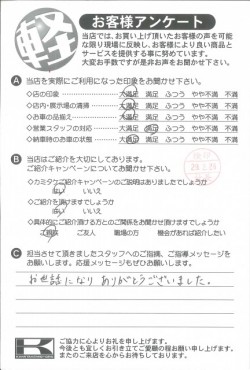 軽 お客様アンケート
当店では、お買い上げ頂いたお客様の声を可能
な限り現場に反映し、お客様により良い商品と
サービスを提供する事に努めています。
大変お手数ですが是非お声をお聞かせ下さい。
A 当店を実際にご利用になった印象をお聞かせ下さい。
◇店の印象 大満足 満足 ふつう やや不満 不満
◇店内・展示場の清掃 大満足 満足 ふつう やや不満 不満
◇お車の品揃え 大満足 満足 ふつう やや不満 不満
◇営業スタッフの対応 大満足 満足 ふつう やや不満 不満
◇納車時のお車の状態 大満足 満足 ふつう やや不満 不満
B 当店はご紹介を大切にしております。
ご紹介キャンペーンについてお聞かせ下さい。
◇カミタケご紹介キャンペーンのご説明はありましたでしょうか
はい いいえ
◇ご紹介を頂けますでしょうか
はい いいえ
◇具体的にご紹介頂ける方とのご関係をお聞かせ頂けますでしょうか
ご親戚 ご友人 職場の方 機会があれば紹介したい
C 担当させて頂きましたスタッフへのご指摘、ご指導メッセージを
お願いします。応援メッセージもぜひお願いします。
お世話になり ありがとうございました。
K
ご協力に心よりお礼を申し上げます。
今後とも宜しくお引き立てご愛顧の程お願い申し上げます。
またのご来店を心からお待ちしております。